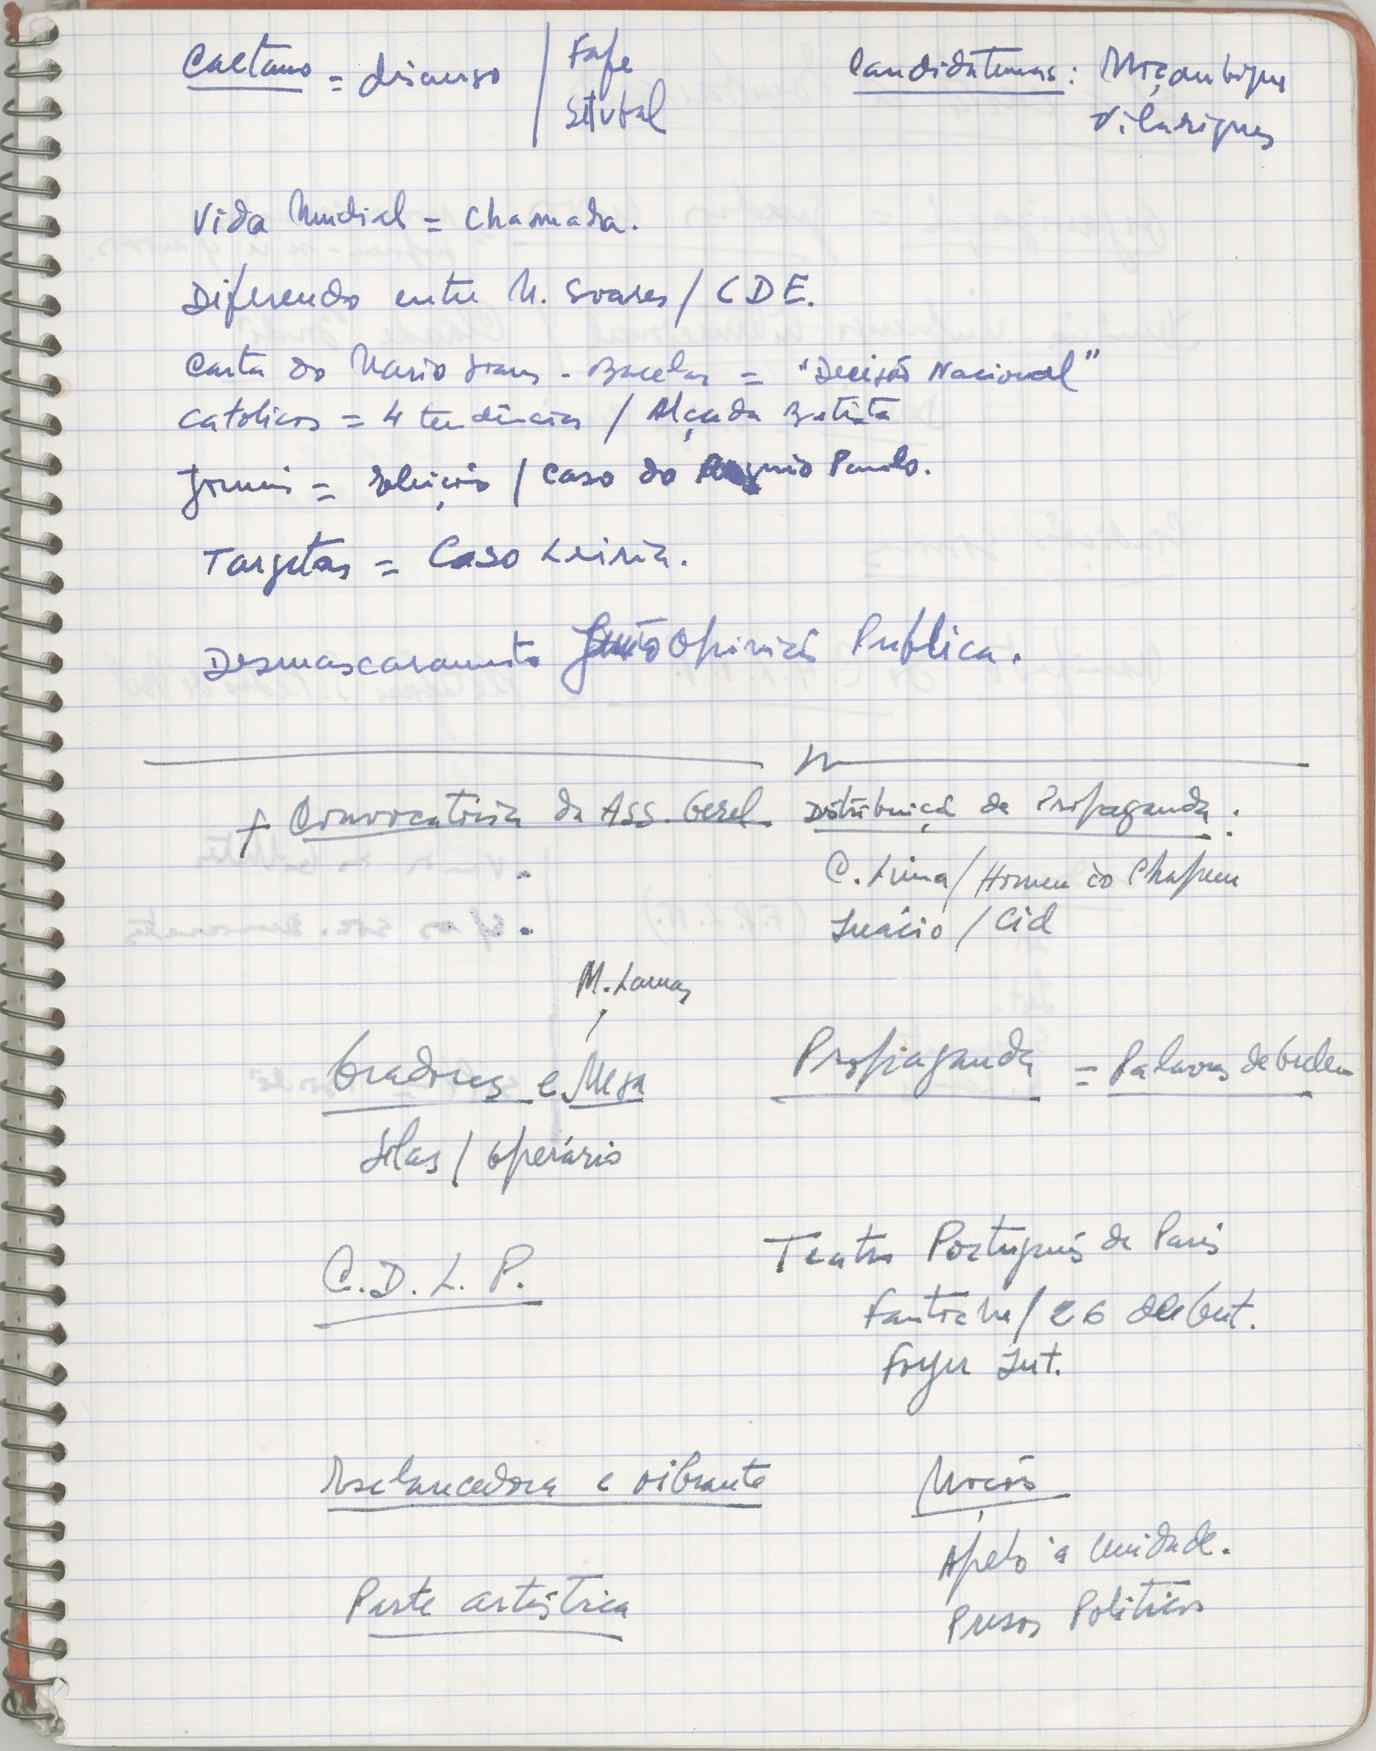 Caetano = discurso / Fafe
Setubal
Candidaturas: Moçambique
Vilarigues
Vida Mundial = Chamada.
Diferendo entre M. Soares / CDE.
Carta do Mario Soares - Bacelar = "Decisão Nacional"
Catolicos = 4 tendências / Alçada Batista
Jornais = / Caso do Paulo.
Targetas = Caso Leiria.
Desmascaramento Junto Opinião Publica.
+ Convocatória da Ass. Geral
Distribuiçã da Propaganda:
C. Lima / Homem do Chapeu
Inácio / Cid
M. Lamas
Oradores e Mesa
Silas / Operário
Propaganda = Palavras de Ordem
C.D.L.P.
Teatro Português de Paris
Fantoche / 26 de Out.
Foyer Int.
Esclarecedora e vibrante
Moção
Apelo à Unidade.
Presos Politicos
Parte artistica